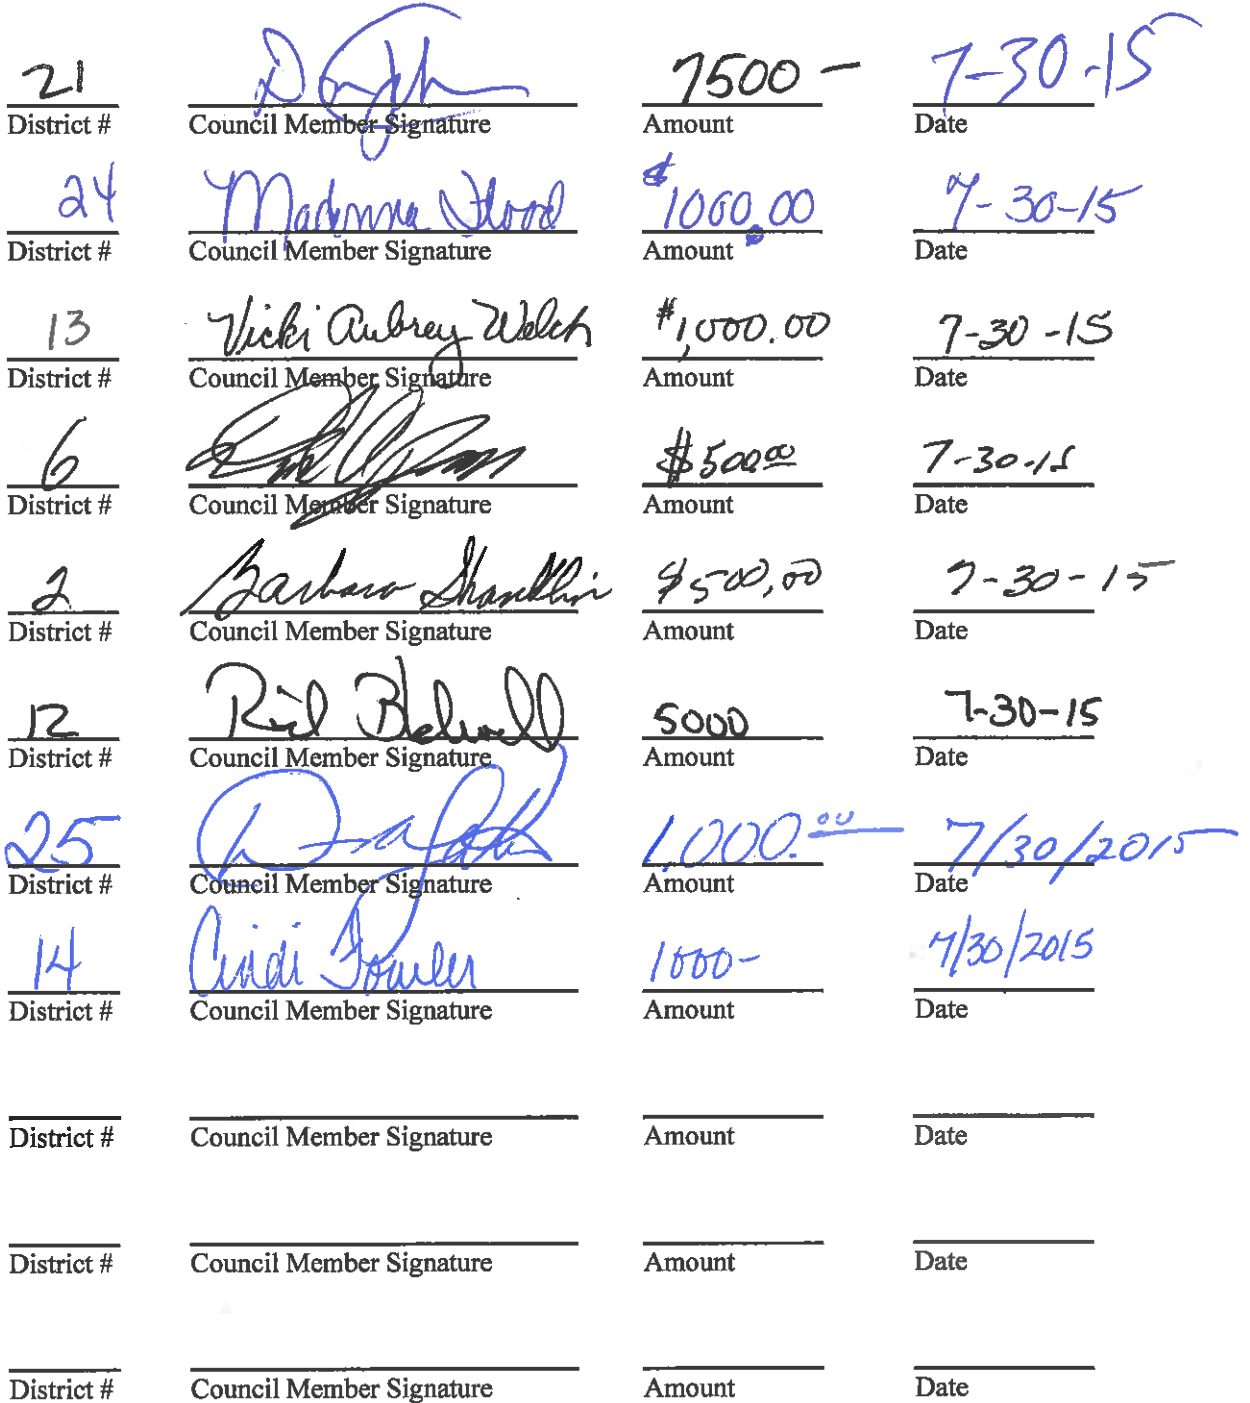 21 7500 – 7-30-15
District # Council Member Signature Amount Date
24 Madonna Flood $1000.00 7-30-15
District # Council Member Signature Amount Date
13 Vicki Aubrey Welch #1,000.00 7-30-15
District # Council Member Signature Amount Date
6 $500.00 7-30-15
District # Council Member Signature Amount Date
2 Barbara Shanklin $500,00 7-30-15
District # Council Member Signature Amount Date
12 Rick Blackwell 5000 7-30-15
District # Council Member Signature Amount Date
25 1,000.00 7/30/2015
District # Council Member Signature Amount Date
14 Cindi Fowler 1000- 7/30/2015
District # Council Member Signature Amount Date
District # Council Member Signature Amount Date
District # Council Member Signature Amount Date
District # Council Member Signature Amount Date